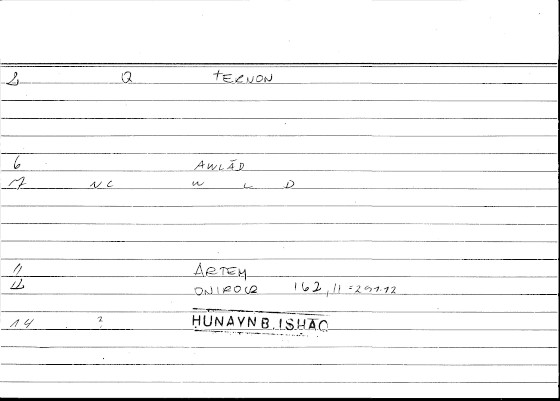 2 Q tERNON
6 AWLĀD
7 NC W L D
11 ARTEM
12 ONIROCR 162,11 = 291.12
14 ? HUNAYN B. ISHAQ